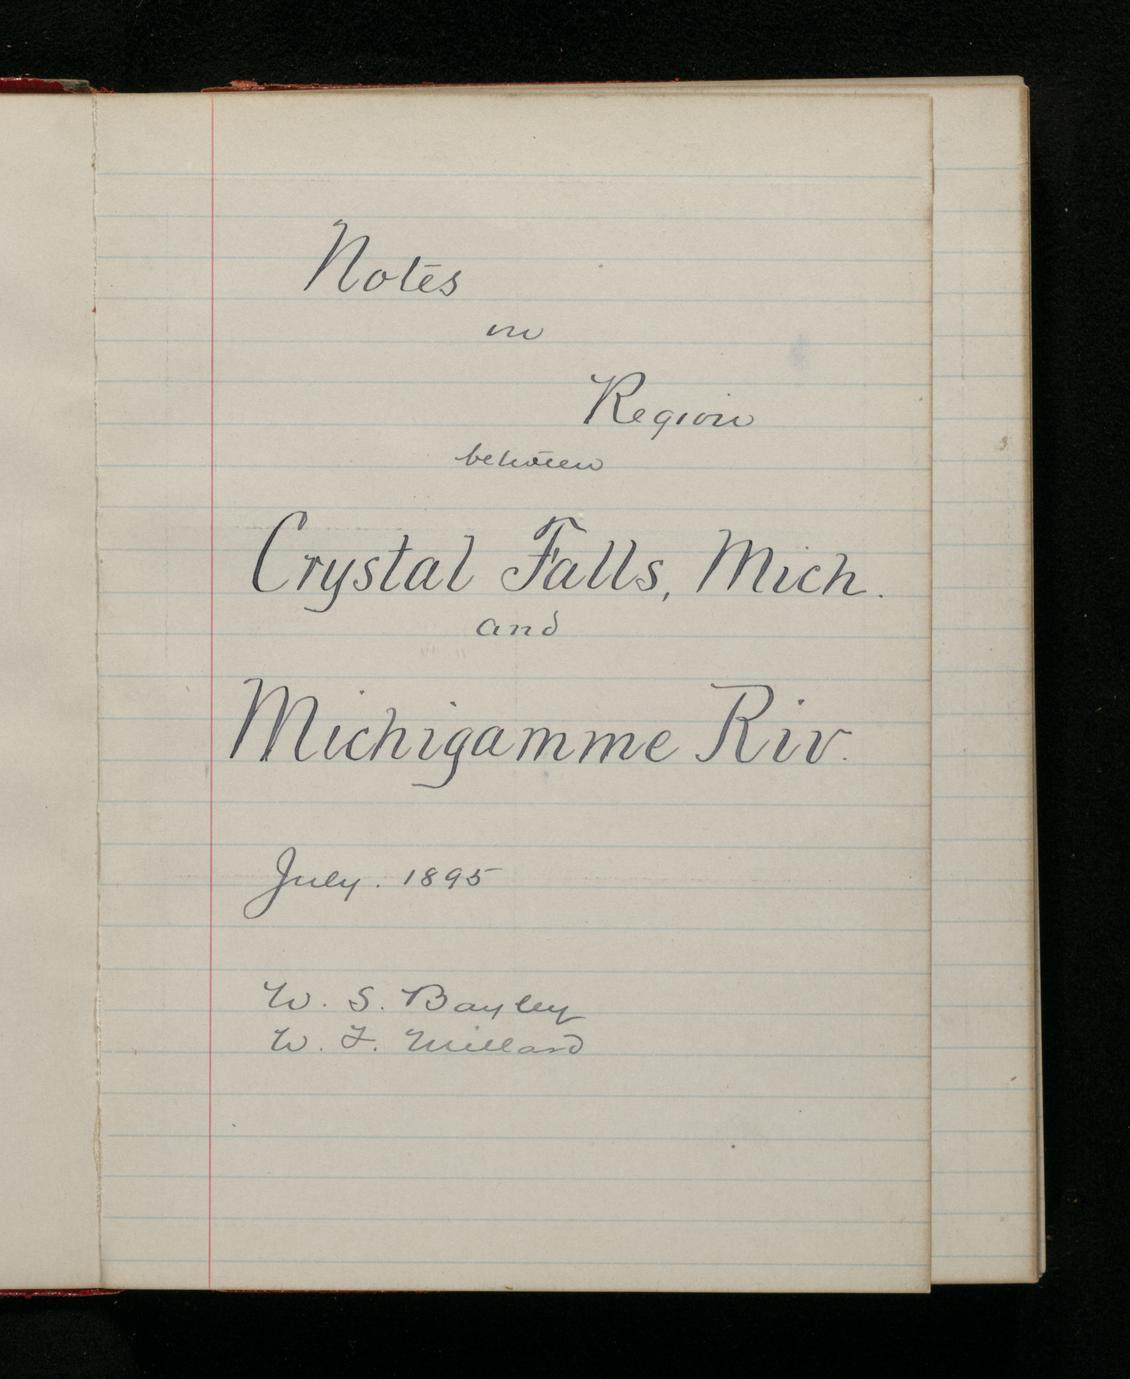 Notes
on
Region
between
Crystal Falls, Mich.
and
Michigamme Riv.
July. 1895
W. S. Bayley
W. F. Millard